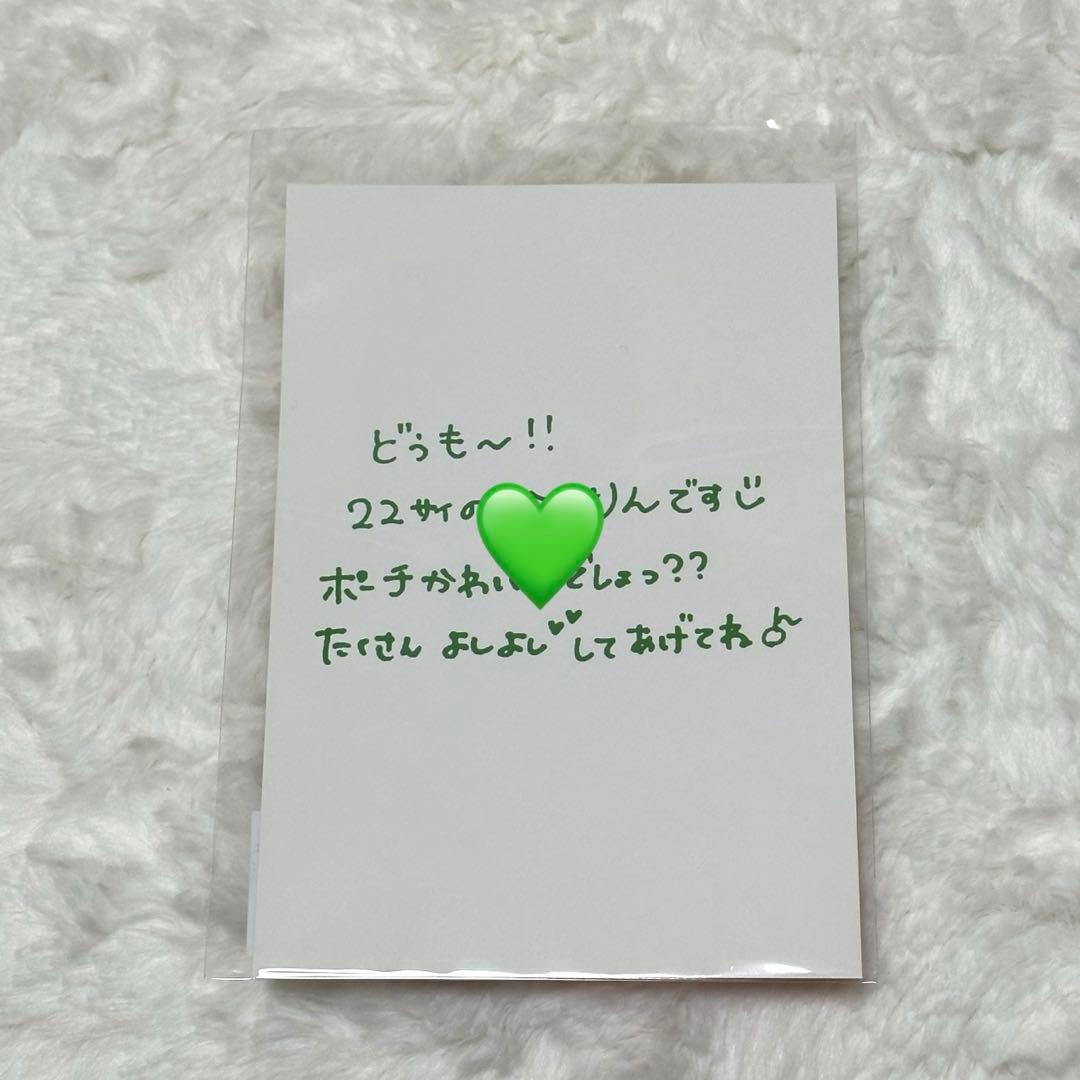 どぅも〜!!
22サイの りんです
ポーチかわい でしょっ??
たくさん よしよし してあげてね♪